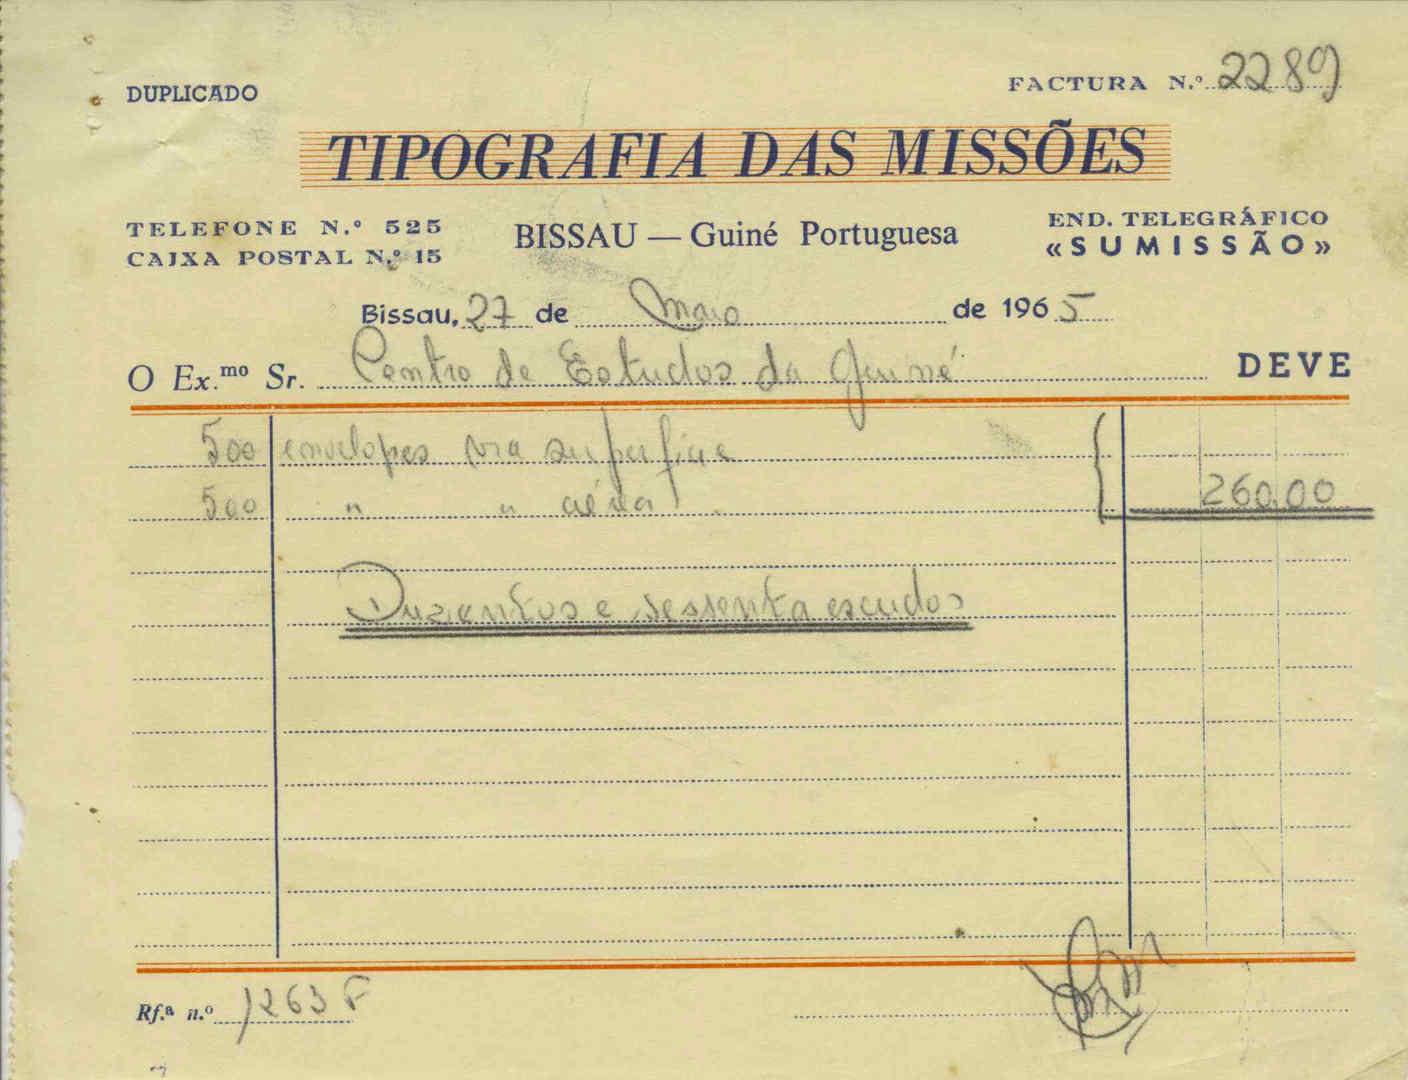 DUPLICADO
FACTURA N.º 2289
TIPOGRAFIA DAS MISSÕES
TELEFONE N.º 525
CAIXA POSTAL N.º 15
BISSAU — Guiné Portuguesa
END. TELEGRÁFICO
«SUMISSÃO»
Bissau, 27 de Maio de 1965
O Ex.mo Sr. Centro de Estudos da Guiné DEVE
500 envelopes via superficie
500 " " aérea 260,00
Duzentos e sessenta escudos
Rf.ª n.º 1263 F